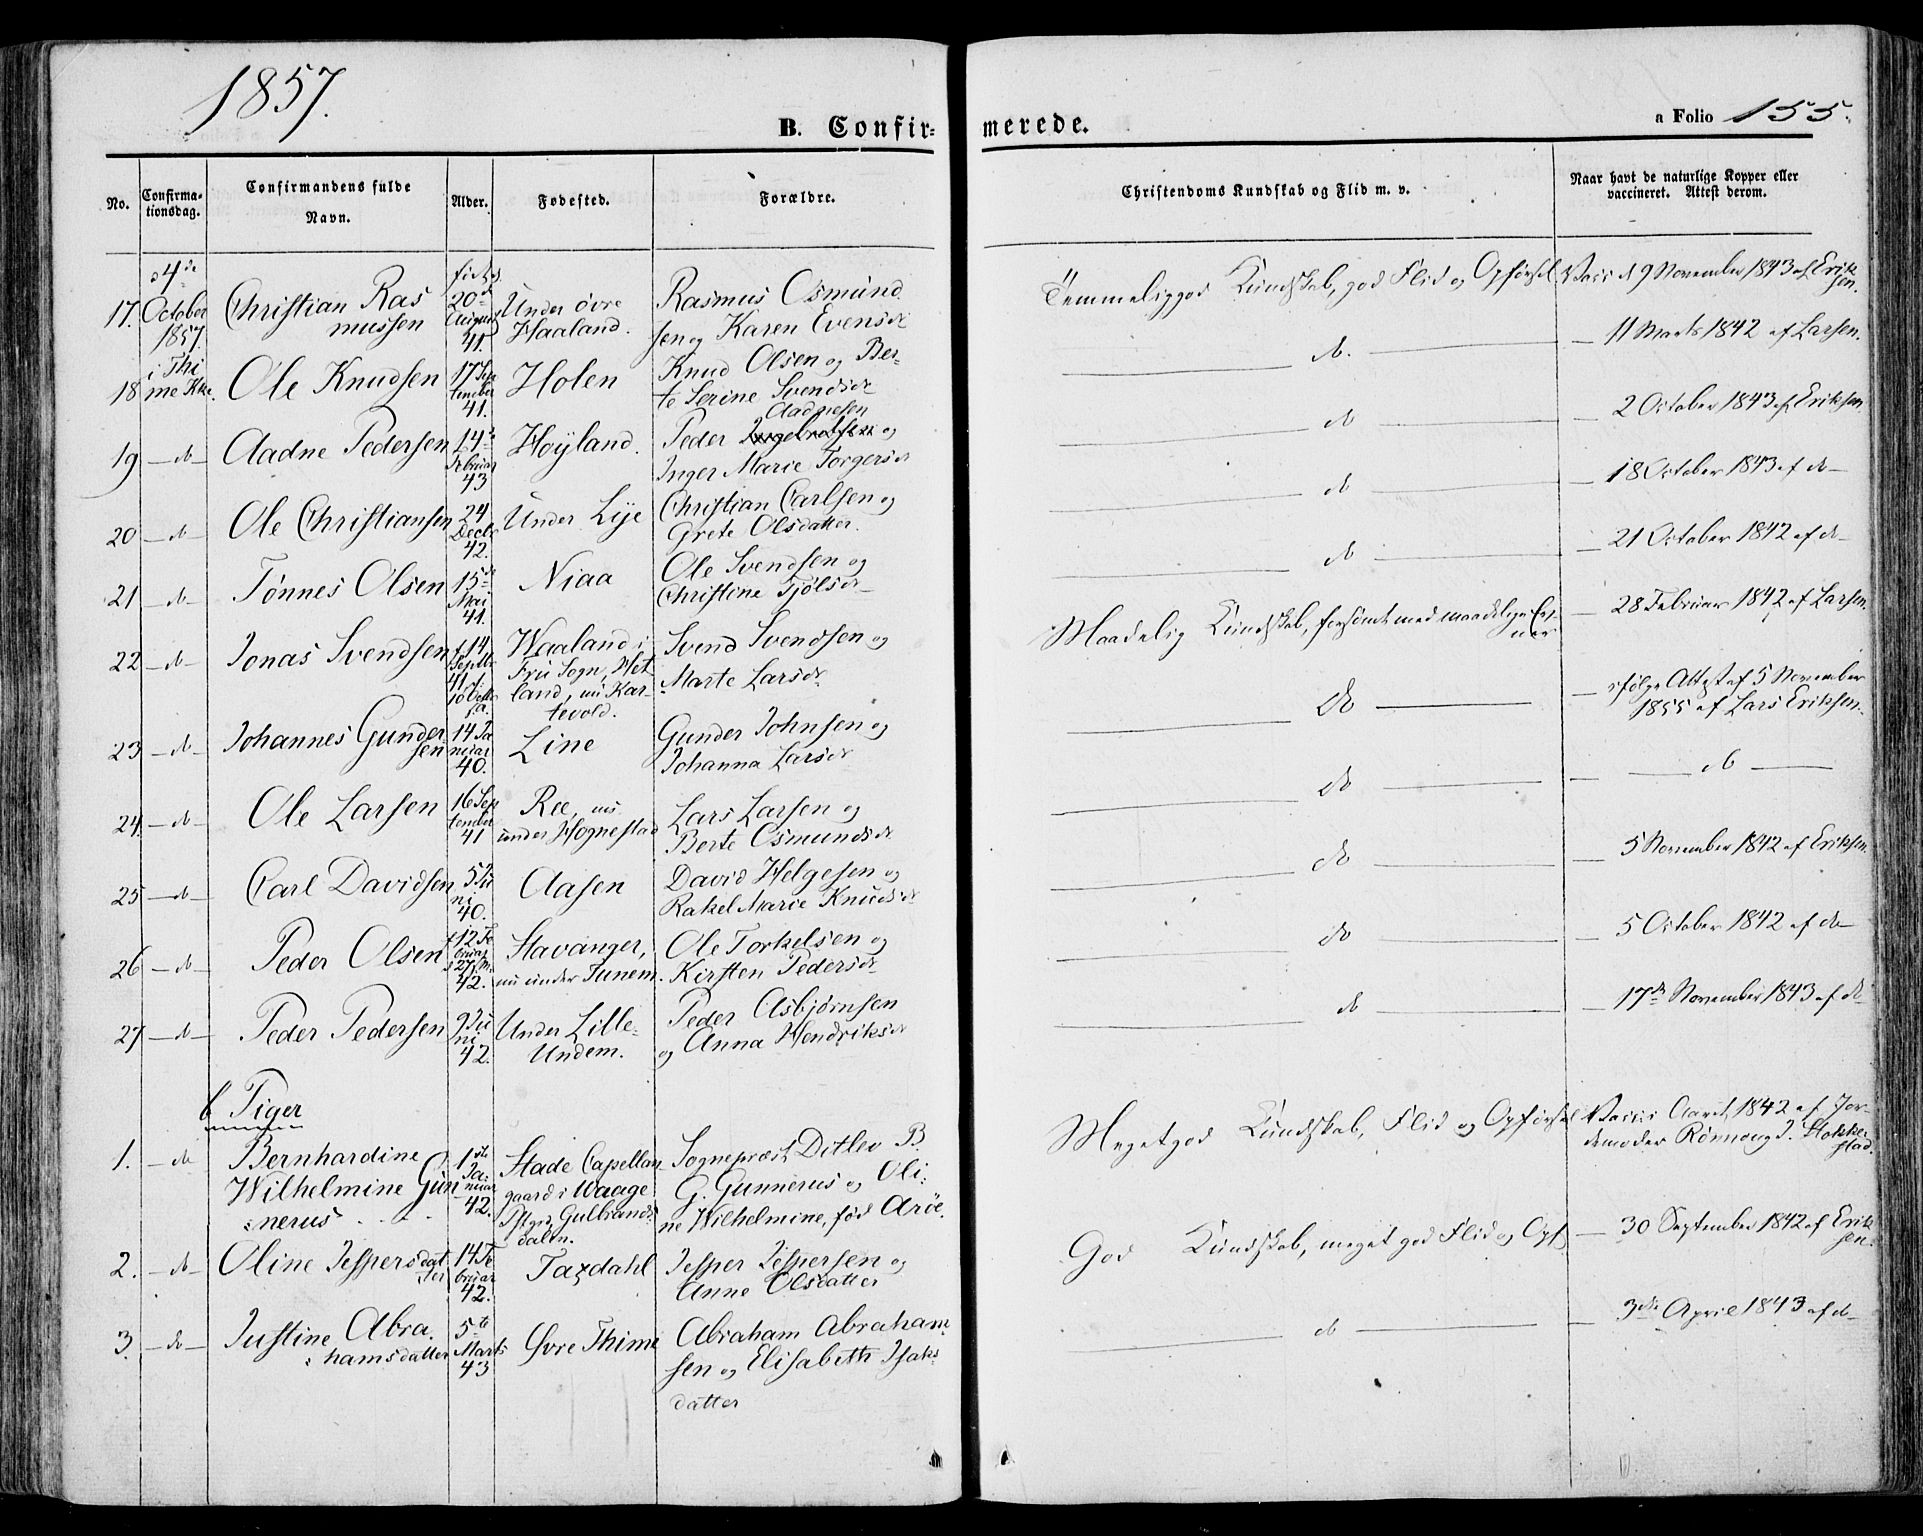 1857.
B. Confir-
merede.
a Folio 155.
No.
Confirma-
tionsdag.
Confirmandens fulde
Navn.
Alder.
Fødested.
Forældre.
Christendoms Kundskab og Flid m. v.
Naar havt de naturlige Kopper eller
vaccineret. Attest derom.
17. d 4de October 1857 i Thime Kke.
Christian Ras
mussen
født d. 20de August 41.
Under övre
Haaland.
Rasmus Osmund
sen og Karen Evensdr
Temmelig god Kundskab, god Flid og Opførsel
Vacc. d 9 November 1843 af Erik
sen.
18
Ole Knudsen
17 Sep
tember
41.
Holen
Knud Olsen og Ber-
te Serine Svendsdr
do.
11 Marts 1842 af Larsen.
19 — do —
Aadne Pedersen
14de
Februar
43
Høyland.
Aadnesen
Peder Ingebretsen og
Inger Marie Torgersdr
do
2 October 1843 af Eriksen
20 — do —
Ole Christiansen
24
Decbr
42.
Under Lye
Christian Carlsen og
Grete Olsdatter.
do
18 October 1843 af do
21 — do —
Tønnes Olsen
15de
Mai
41.
Niaa
Ole Svendsen og
Christine Tjølsdr
do
21 October 1842 af do
22 — do —
Jonas Svendsen
f. 14
Septbr
41
Waaland i
Frue Sogn, Het
land, nu Kar-
tevold.
Svend Svendsen og
Marte Larsdr
Maadelig Kundskab, forsømt med maadelige Ev-
ner
28 Februar 1842 af Larsen.
23 — do —
Johannes Gunder
sen
14 Ja
nuar
40.
Line
Gunder Johnsen og
Johanna Larsdr
do
ifølge Attest af 5 November
1855 af Lars Eriksen.
24. — do —
Ole Larsen
16 Sep
tember
41
Ree, nu
under Hognestad
Lars Larsen og
Berte Osmundsdr
do
do
25 — do —
Carl Davidsen
5 Ju
ni
40.
Aasen
David Helgesen og
Rakel Marie Knudsdr
do
5 November 1842 af Eriksen.
26 — do —
Peder Olsen
f 12 Fe
bruar
42.
Stavanger,
nu under Tunem.
Ole Torkelsen og
Kirsten Pedersdr
do
5 October 1842 af do
27 — do —
Peder Pedersen
9 Ju
ni
42.
Under Lille-
Undem.
Peder Asbjørnsen
og Anna Hendriksdr
do
17de November 1843 af do
b Piger
1. — do
Bernhardine
Wilhelmine Gun
nerus
1ste
Ja-
nuar
42.
Stade Capellan
gaard i Waage
Pstgd, Gulbrands
dalen.
Sognepræst Ditlev B.
G. Gunnerus og Oli-
ne Wilhelmine, fød Aröe.
Meget god Kundskab, Flid og Opførsel
Vaccis Aaret 1842 af Jor-
demoder Rønnaug J. Stokke
stad.
2. — do —
Oline Jespersdat
ter
14 Fe
bruar
42.
Taxdahl
Jesper Jespersen og
Anne Olsdatter
God Kundskab, meget god Flid og Opf
30 September 1842 af Erik
sen.
3. — do —
Justine Abra-
hamsdatter
5te
Marts
43
Øvre Thime
Abraham Abraham
sen og Elisabeth Isaks
datter
do
3die April 1843 af do